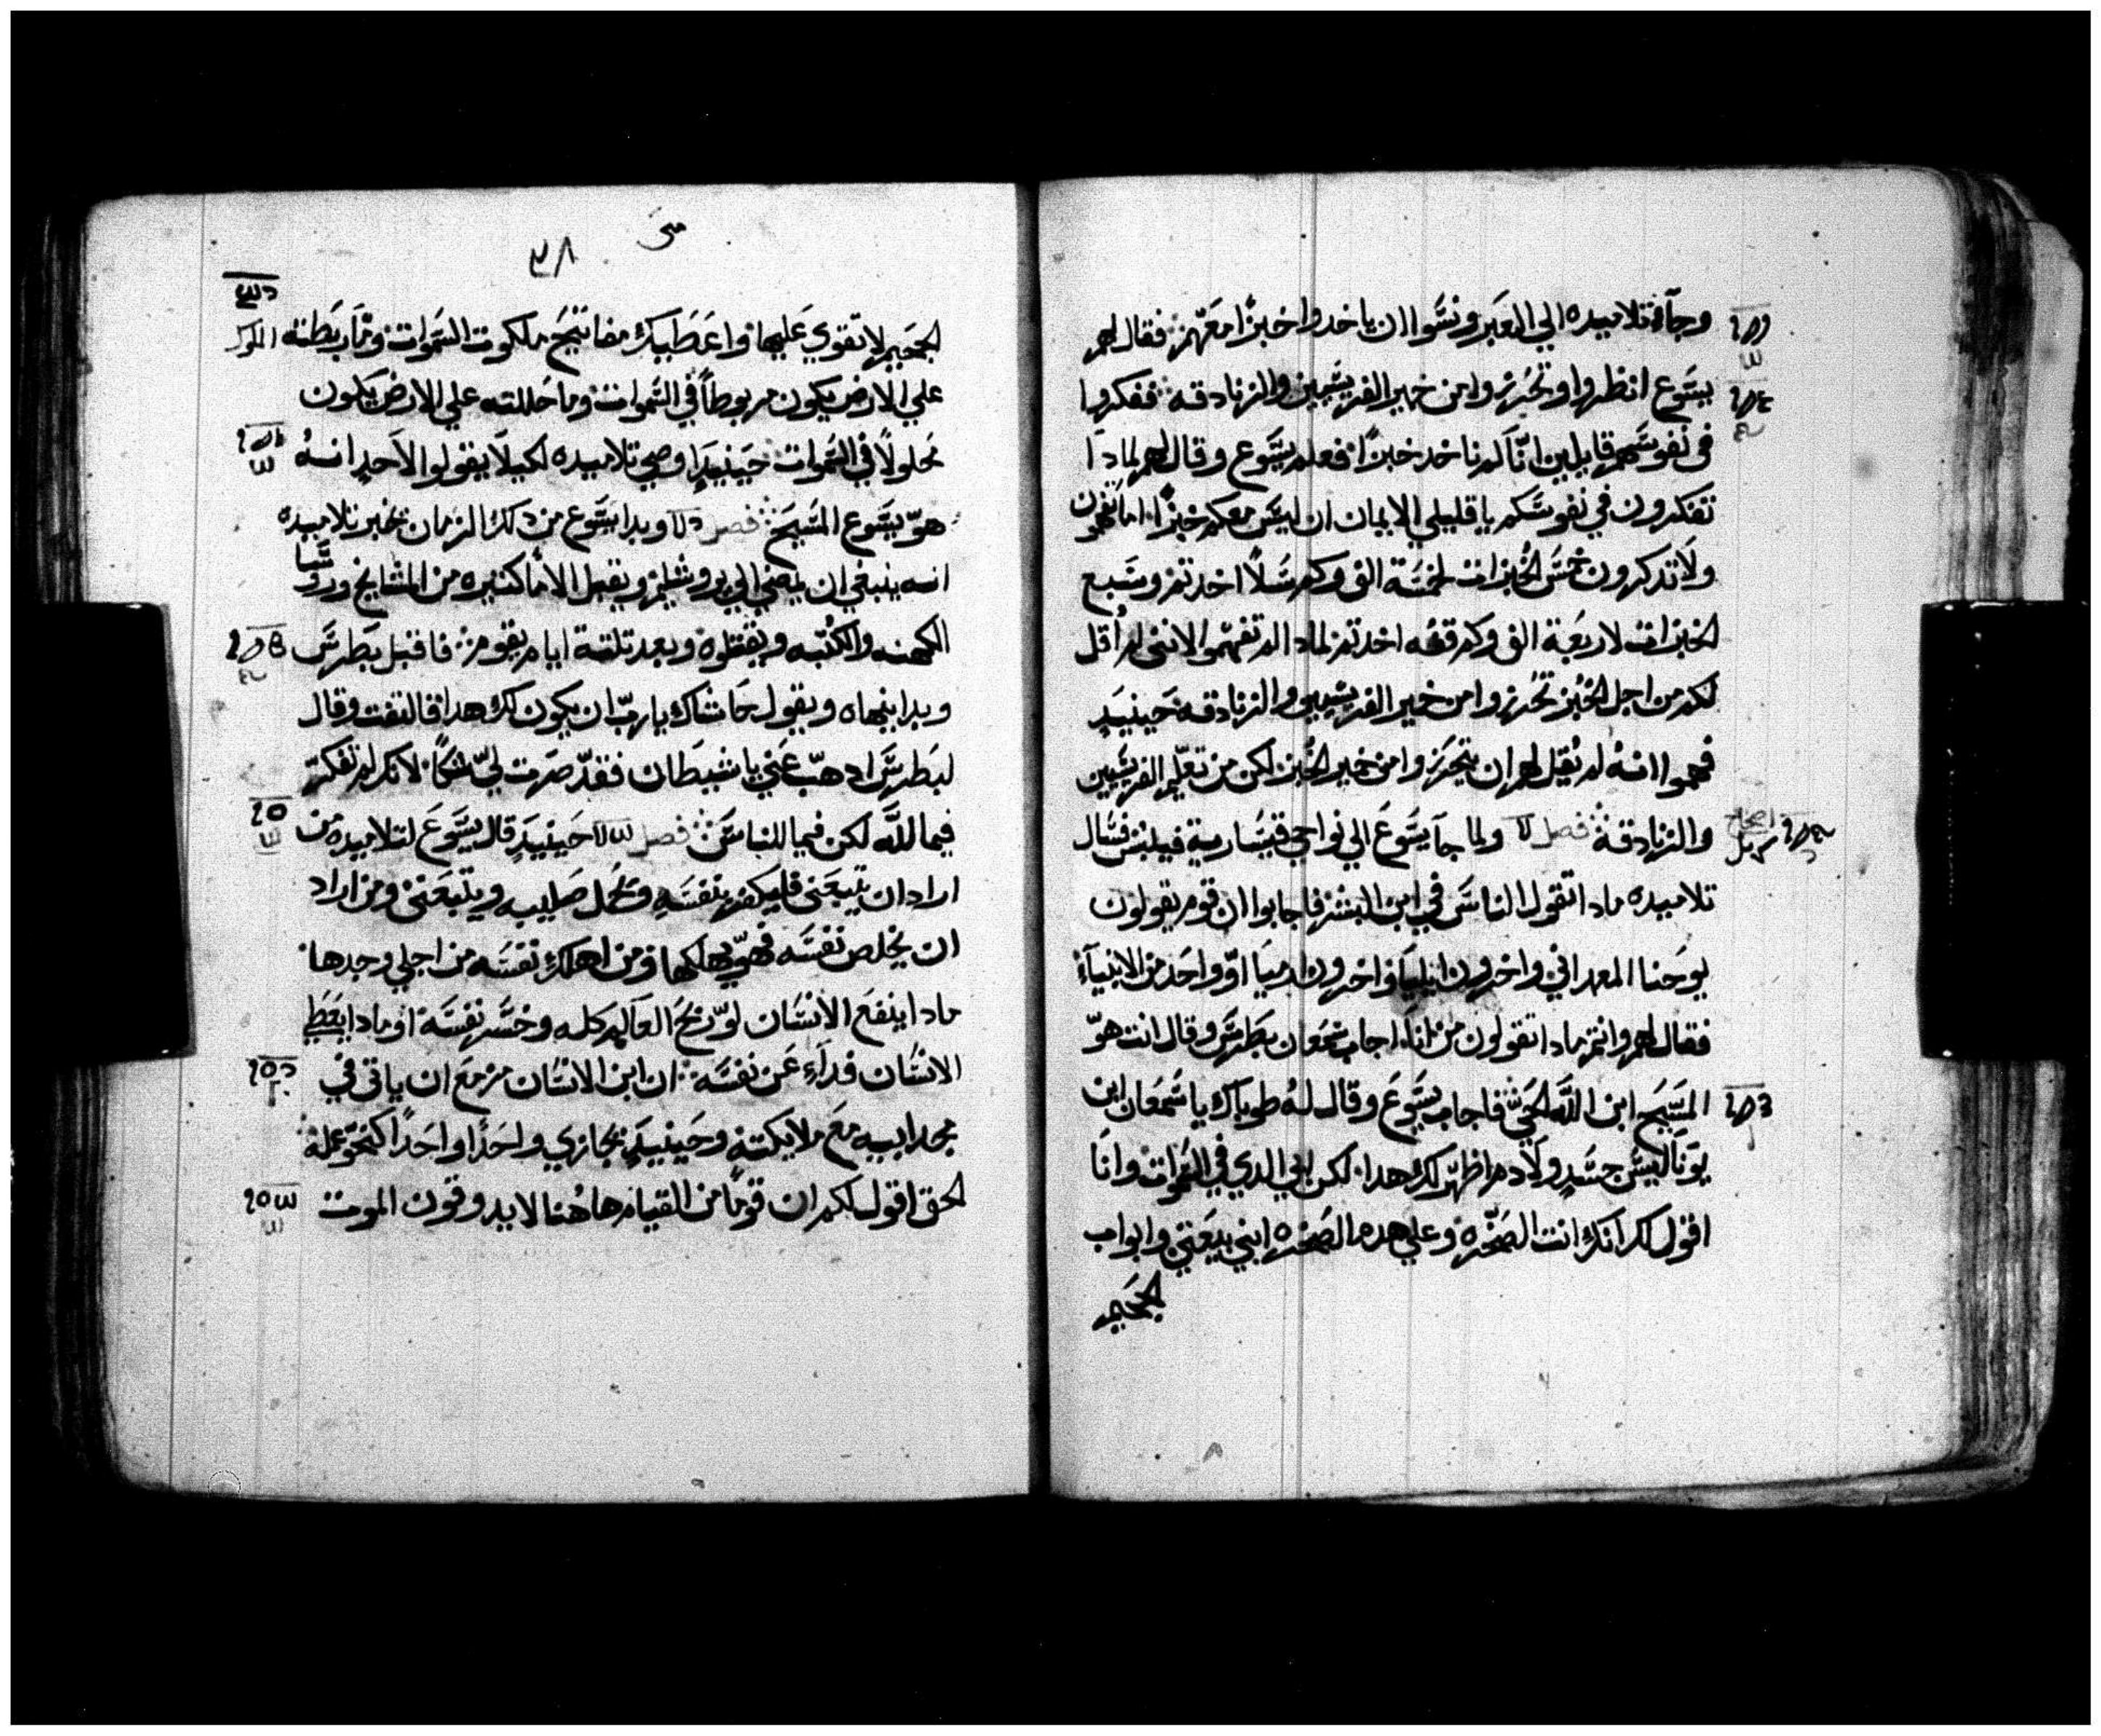 وجآء تلاميده الي العبر ونسوا ان ياخدوا خبزا معهم فقال لهم
يسوع انظروا وتحرزوا من خمير الفريسيين والزنادقة ففكروا
في نفوسهم قايلين انا لم ناخد خبزا فعلم يسوع وقال لهم لمادا
تفكرون في نفوسكم يا قليلي الايمان ان ليس معكم خبزا اما تفهمون
ولا تدكرون خمس الخبزات لخمسة الف وكم سلا اخدتم وسبع
الخبزات لاربعة الف وكم قفه اخدتم لمادا لم تفهموا لانني لم اقل
لكم من اجل الخبز تحرزوا من خمير الفريسيين والزنادقة حينيد
فهموا انه لم يقل لهم ان يتحرزوا من خمير الخبز لكن من تعليم الفريسيين
والزنادقة فصل ولما جآ يسوع الي نواحي قيسارية فيلبس فسال
اصحاح
تلاميده مادا تقول الناس في ابن البشر فاجابوا ان قوم يقولون
يوحنا المعمداني واخرون ايليا واخرون ارميا او واحد من الانبيآء
فقال لهم وانتم مادا تقولون من انا اجاب سمعان بطرس وقال انت هو
المسيح ابن الله الحي فاجاب يسوع وقال له طوباك يا سمعان ابن
يونا ليس جسد ولا دم اظهر لك هدا لكن ابي الدي في السموات وانا
اقول لك انك انت الصخره وعلي هده الصخره ابني بيعتي وابواب
الجحيم
متى
٣٨
الجحيم لا تقوي عليها واعطيك مفاتيح ملكوت السموات وما ربطته
علي الارض يكون مربوطا في السموات وما حللته علي الارض يكون
محلولا في السموات حينيد اوصي تلاميده لكيلا يقولوا لاحد انه
هو يسوع المسيح فصل وبدا يسوع من دلك الزمان يخبر تلاميده
انه ينبغي ان يمضي الي يروشليم ويقبل الاما كثيره من المشايخ وروسا
الكهنه والكتبه ويقتلوه وبعد تلتة ايام يقوم فاقبل بطرس
وبدا ينهاه ويقول حاشاك يا رب ان يكون لك هدا فالتفت وقال
لبطرس ادهب عني يا شيطان فقد صرت لي شكا لانك لم تفكر
فيما لله لكن فيما للناس فصل حينيد قال يسوع لتلاميده من
اراد ان يتبعني فليكفر بنفسه ويحمل صليبه ويتبعني ومن اراد
ان يخلص نفسه فهو يهلكها ومن اهلك نفسه من اجلي وجدها
مادا ينفع الانسان لو ربح العالم كله وخسر نفسه او مادا يعطي
الانسان فدآء عن نفسه ان ابن الانسان مزمع ان ياتي في
مجد ابيه مع ملايكته وحينيد يجازي واحدا واحدا كنحو عمله
الحق اقول لكم ان قوما من القيام هاهنا لا يدوقون الموت